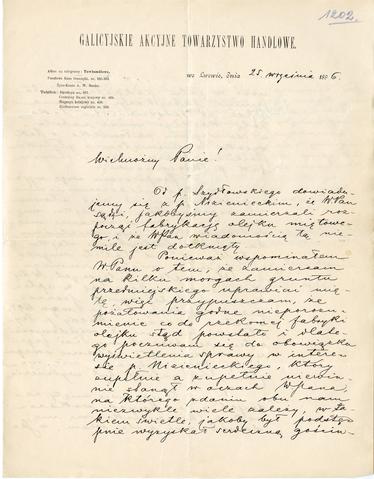 1202.
GALICYJSKIE AKCYJNE TOWARZYSTWO HANDLOWE.
Adres na telegramy: Towhandlowe.
Telefon:
we Lwowie, dnia 25 września 1896.
Wielmożny Panie!
Od p. Szydłowskiego dowiadu-
jemy się z p. Nizienieckim, że WPan
sądzi, jakobyśmy zamierzali roz-
począć fabrykację olejku mięto-
wego, a że WPan wiadomością tą nie-
mile jest dotknięty.
Ponieważ wspominałem
WPanu o tem, że zamierzam
na kilku morgach gruntu
uprawiać mię-
tę, więc przypuszczam, że
pożałowania godne nieporozu-
mienie co do rzekomej fabryki
olejku stąd powstało i dlate-
go poczuwam się do obowiązku
wyświetlenia sprawy w intere-
sie p. Nizienieckiego, który
zupełnie niewin-
nie stanął w oczach WPana,
na którego zdaniu obu nam
niezwykle wiele zależy, w ta-
kiem świetle, jakoby był podstęp-
nie wyzyskał serdeczną gościn-